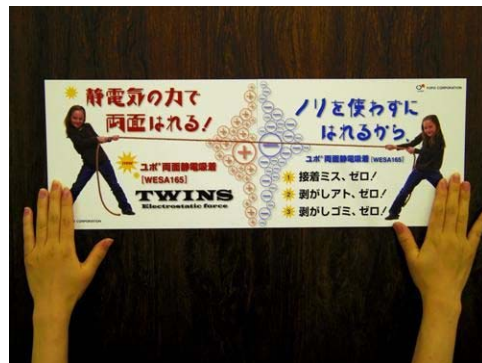 静電気の力で
両面はれる!
ユポ®両面静電吸着
[WESA165]
TWINS
Electrostatic force
YUPO CORPORATION
ノリを使わずに
はれるから、
ユポ®両面静電吸着 [WESA165]
1 接着ミス、ゼロ!
2 剥がしアト、ゼロ!
3 剥がしゴミ、ゼロ!